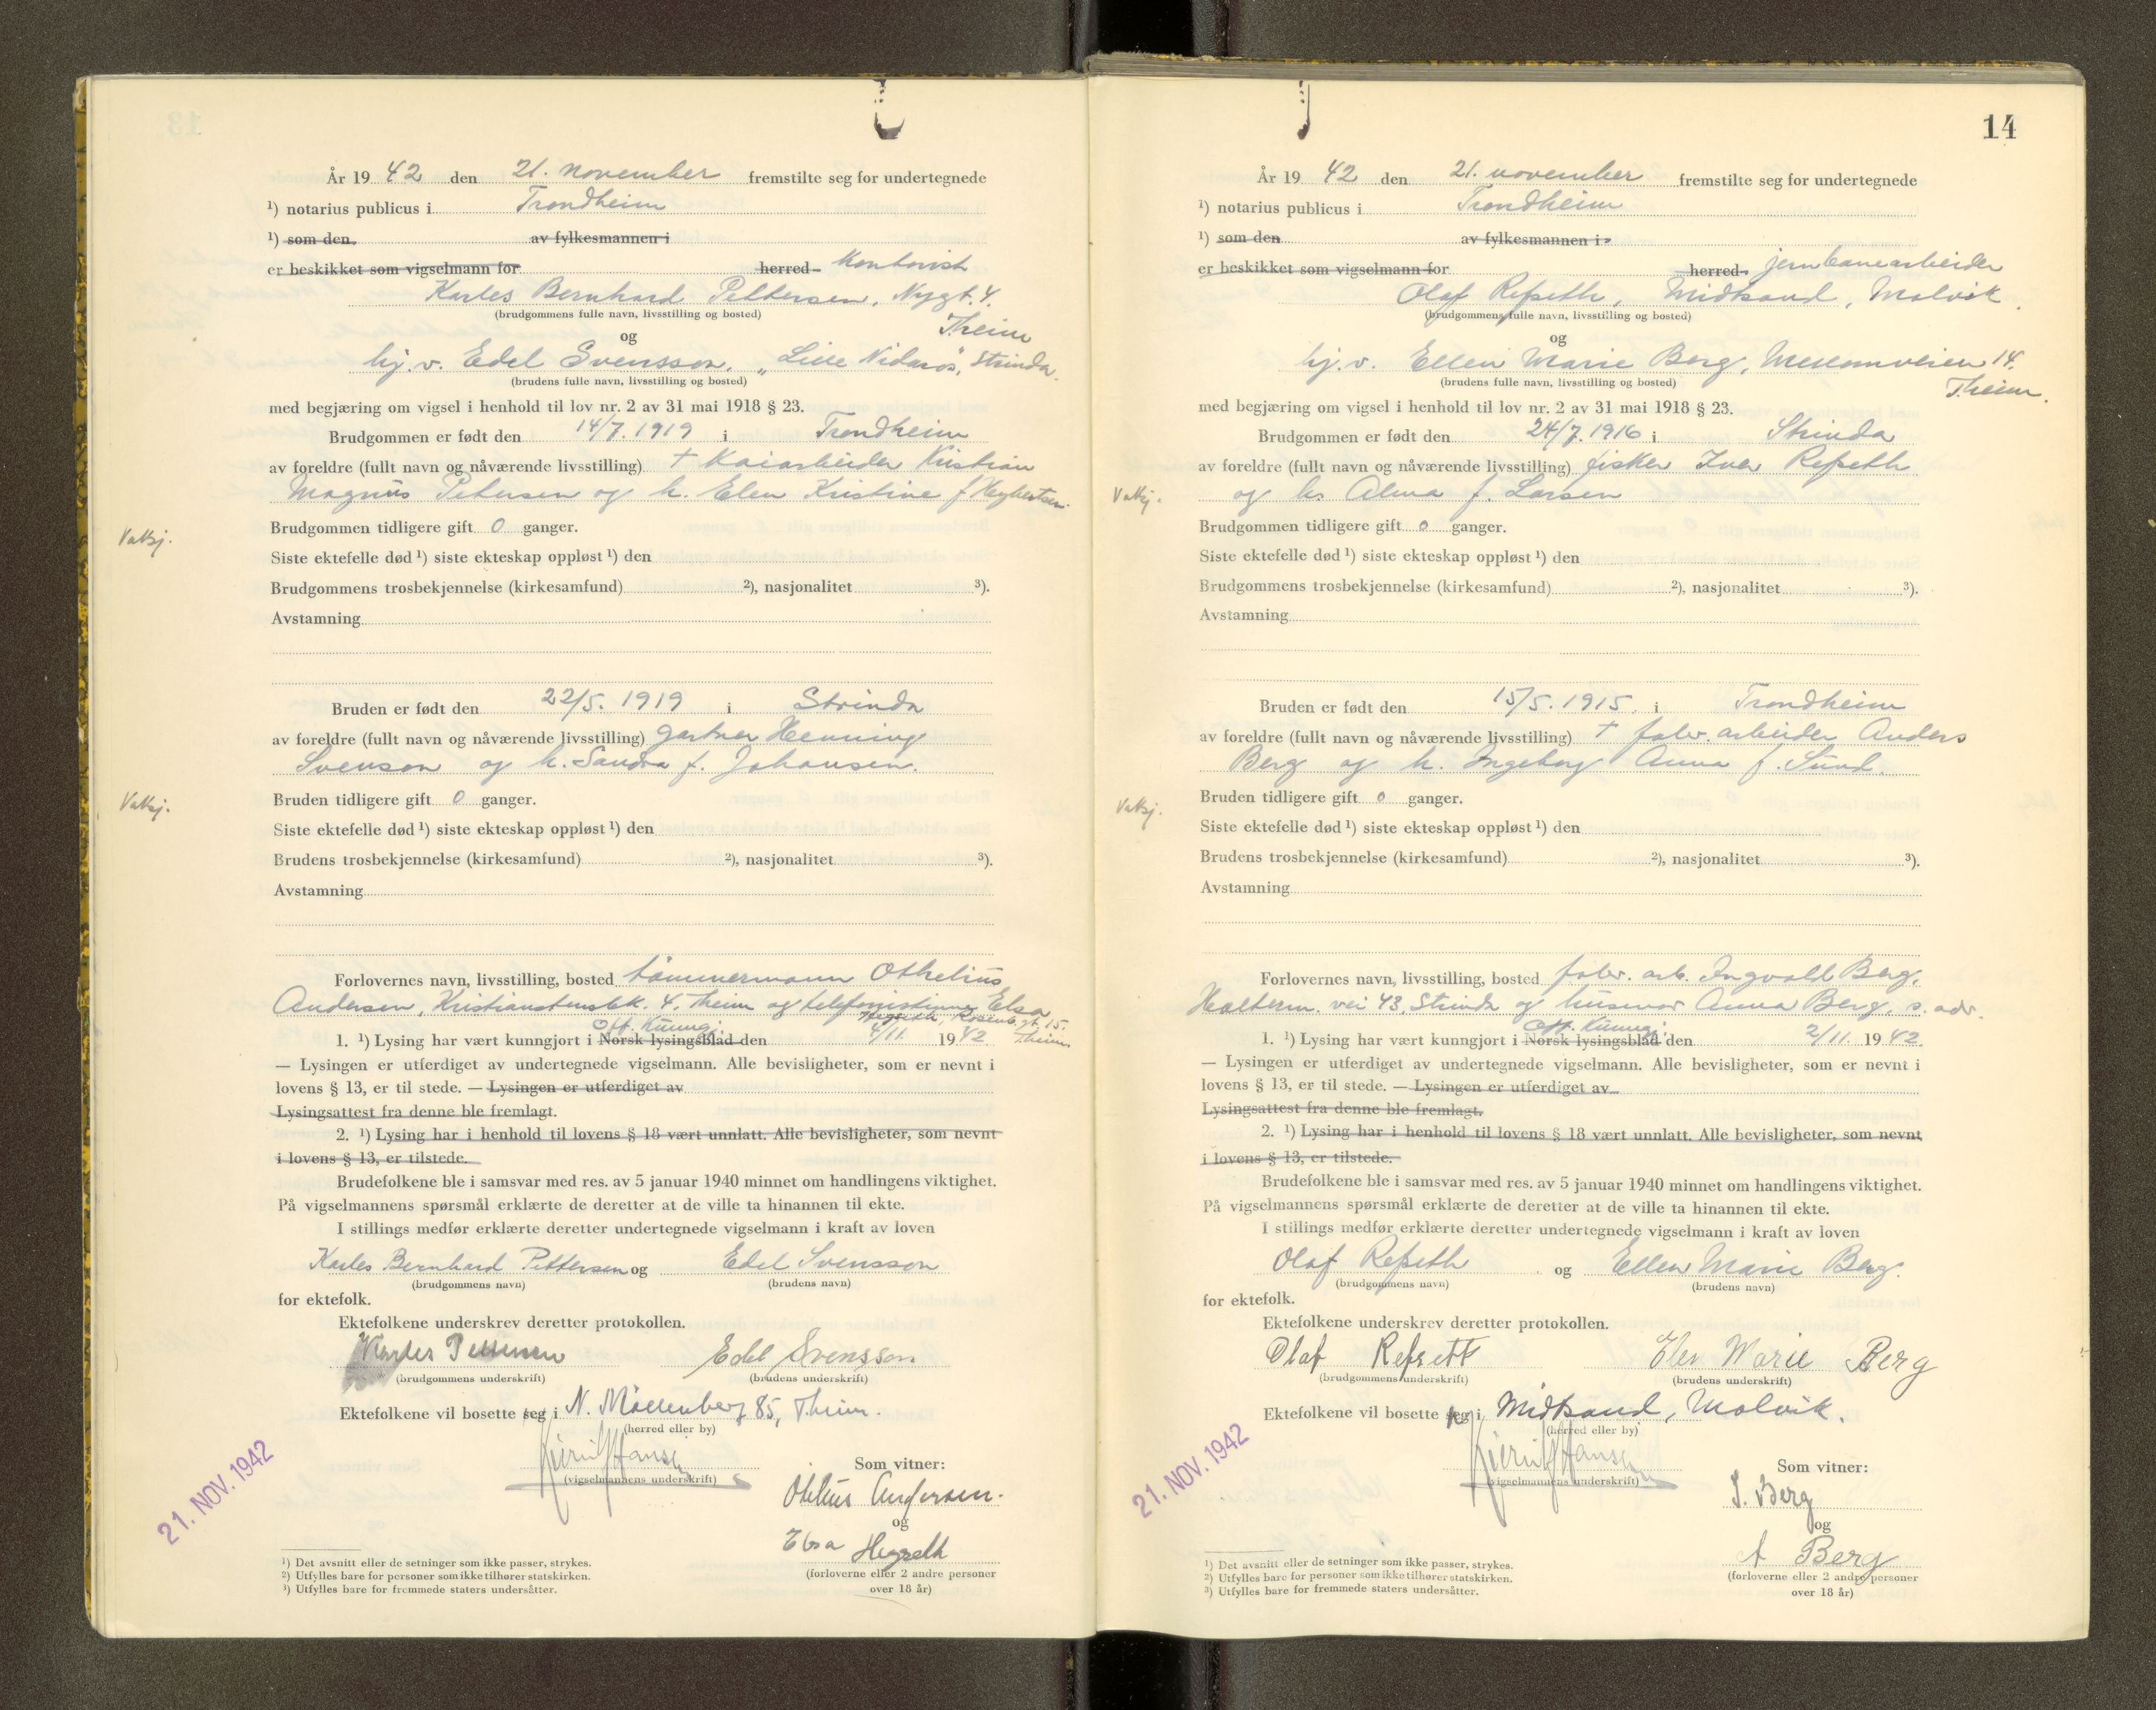 År 19 42 den 21. november fremstilte seg for undertegnede
¹) notarius publicus i Trondheim
¹) som den av fylkesmannen i
er beskikket som vigselmann for herred - Kontorist
Karles Bernhard Pettersen, Nygt. 4.
(brudgommens fulle navn, livsstilling og bosted)
T.heim
og
hj. v. Edel Svensson, „Lille Nidarøs", Strinda.
(brudens fulle navn, livsstilling og bosted)
med begjæring om vigsel i henhold til lov nr. 2 av 31 mai 1918 § 23.
Brudgommen er født den 14/7. 1919 i Trondheim
av foreldre (fullt navn og nåværende livsstilling) † Kaiarbeider Kristian
Magnus Petersen og h. Elen Kristine f.
Vatsj.
Brudgommen tidligere gift 0 ganger.
Siste ektefelle død ¹) siste ekteskap oppløst ¹) den
Brudgommens trosbekjennelse (kirkesamfund) ²), nasjonalitet ³).
Avstamning
Bruden er født den 22/5. 1919 i Strinda
av foreldre (fullt navn og nåværende livsstilling) gartner Henning
Svenson og h. Sandra f. Johansen.
Vatsj.
Bruden tidligere gift 0 ganger.
Siste ektefelle død ¹) siste ekteskap oppløst ¹) den
Brudens trosbekjennelse (kirkesamfund) ²), nasjonalitet ³).
Avstamning
Forlovernes navn, livsstilling, bosted tømmermann Othelius
Andersen, Kristianstensbk. 4. Theim og telefonistinne Elsa
Hegseth, Rosenb. gt. 15.
Theim
Off. Kunngj.
1. ¹) Lysing har vært kunngjort i Norsk lysingsblad den 4/11. 19 42
— Lysingen er utferdiget av undertegnede vigselmann. Alle bevisligheter, som er nevnt i
lovens § 13, er til stede. — Lysingen er utferdiget av
Lysingsattest fra denne ble fremlagt.
2. ¹) Lysing har i henhold til lovens § 18 vært unnlatt. Alle bevisligheter, som nevnt
i lovens § 13, er tilstede.
Brudefolkene ble i samsvar med res. av 5 januar 1940 minnet om handlingens viktighet.
På vigselmannens spørsmål erklærte de deretter at de ville ta hinannen til ekte.
I stillings medfør erklærte deretter undertegnede vigselmann i kraft av loven
Karles Bernhard Pettersen og Edel Svensson
(brudgommens navn) (brudens navn)
for ektefolk.
Ektefolkene underskrev deretter protokollen.
Karles Pettersen Edel Svensson
(brudgommens underskrift) (brudens underskrift)
Ektefolkene vil bosette seg i N. Møllenberg 85, T.heim.
(herred eller by)
(vigselmannens underskrift)
Som vitner:
Othelius Andersen.
og
Elsa Hegseth
(forloverne eller 2 andre personer
over 18 år)
21. NOV. 1942
¹) Det avsnitt eller de setninger som ikke passer, strykes.
²) Utfylles bare for personer som ikke tilhører statskirken.
³) Utfylles bare for fremmede staters undersåtter.
14
År 19 42 den 21. november fremstilte seg for undertegnede
¹) notarius publicus i Trondheim
¹) som den av fylkesmannen i
er beskikket som vigselmann for herred - jernbanearbeider
Olaf Refseth, Midtsand, Malvik
(brudgommens fulle navn, livsstilling og bosted)
og
hj. v. Ellen Marie Berg, Mellomveien 14.
(brudens fulle navn, livsstilling og bosted)
T.heim.
med begjæring om vigsel i henhold til lov nr. 2 av 31 mai 1918 § 23.
Brudgommen er født den 24/7. 1916 i Strinda
av foreldre (fullt navn og nåværende livsstilling) fisker Iver Refseth
og h. Alma f. Larsen
Vatsj.
Brudgommen tidligere gift 0 ganger.
Siste ektefelle død ¹) siste ekteskap oppløst ¹) den
Brudgommens trosbekjennelse (kirkesamfund) ²), nasjonalitet ³).
Avstamning
Bruden er født den 15/5. 1915. i Trondheim
av foreldre (fullt navn og nåværende livsstilling) † fabr. arbeider Anders
Berg og h. Ingeborg Anna f. Sund.
Vatsj.
Bruden tidligere gift 0 ganger.
Siste ektefelle død ¹) siste ekteskap oppløst ¹) den
Brudens trosbekjennelse (kirkesamfund) ²), nasjonalitet ³).
Avstamning
Forlovernes navn, livsstilling, bosted fabr. arb. Ingvald Berg,
Halterm. vei 43, Strinda og husmor Anna Berg, s. adr.
Off. Kunngj.
1. ¹) Lysing har vært kunngjort i Norsk lysingsblad den 2/11. 19 42.
— Lysingen er utferdiget av undertegnede vigselmann. Alle bevisligheter, som er nevnt i
lovens § 13, er til stede. — Lysingen er utferdiget av
Lysingsattest fra denne ble fremlagt.
2. ¹) Lysing har i henhold til lovens § 18 vært unnlatt. Alle bevisligheter, som nevnt
i lovens § 13, er tilstede.
Brudefolkene ble i samsvar med res. av 5 januar 1940 minnet om handlingens viktighet.
På vigselmannens spørsmål erklærte de deretter at de ville ta hinannen til ekte.
I stillings medfør erklærte deretter undertegnede vigselmann i kraft av loven
Olaf Refseth og Ellen Marie Berg.
(brudgommens navn) (brudens navn)
for ektefolk.
Ektefolkene underskrev deretter protokollen.
Olaf Refseth Marie Berg
(brudgommens underskrift) (brudens underskrift)
Ektefolkene vil bosette seg i Midtsand, Malvik.
(herred eller by)
(vigselmannens underskrift)
Som vitner:
I. Berg
og
A Berg
(forloverne eller 2 andre personer
over 18 år)
21. NOV. 1942
¹) Det avsnitt eller de setninger som ikke passer, strykes.
²) Utfylles bare for personer som ikke tilhører statskirken.
³) Utfylles bare for fremmede staters undersåtter.